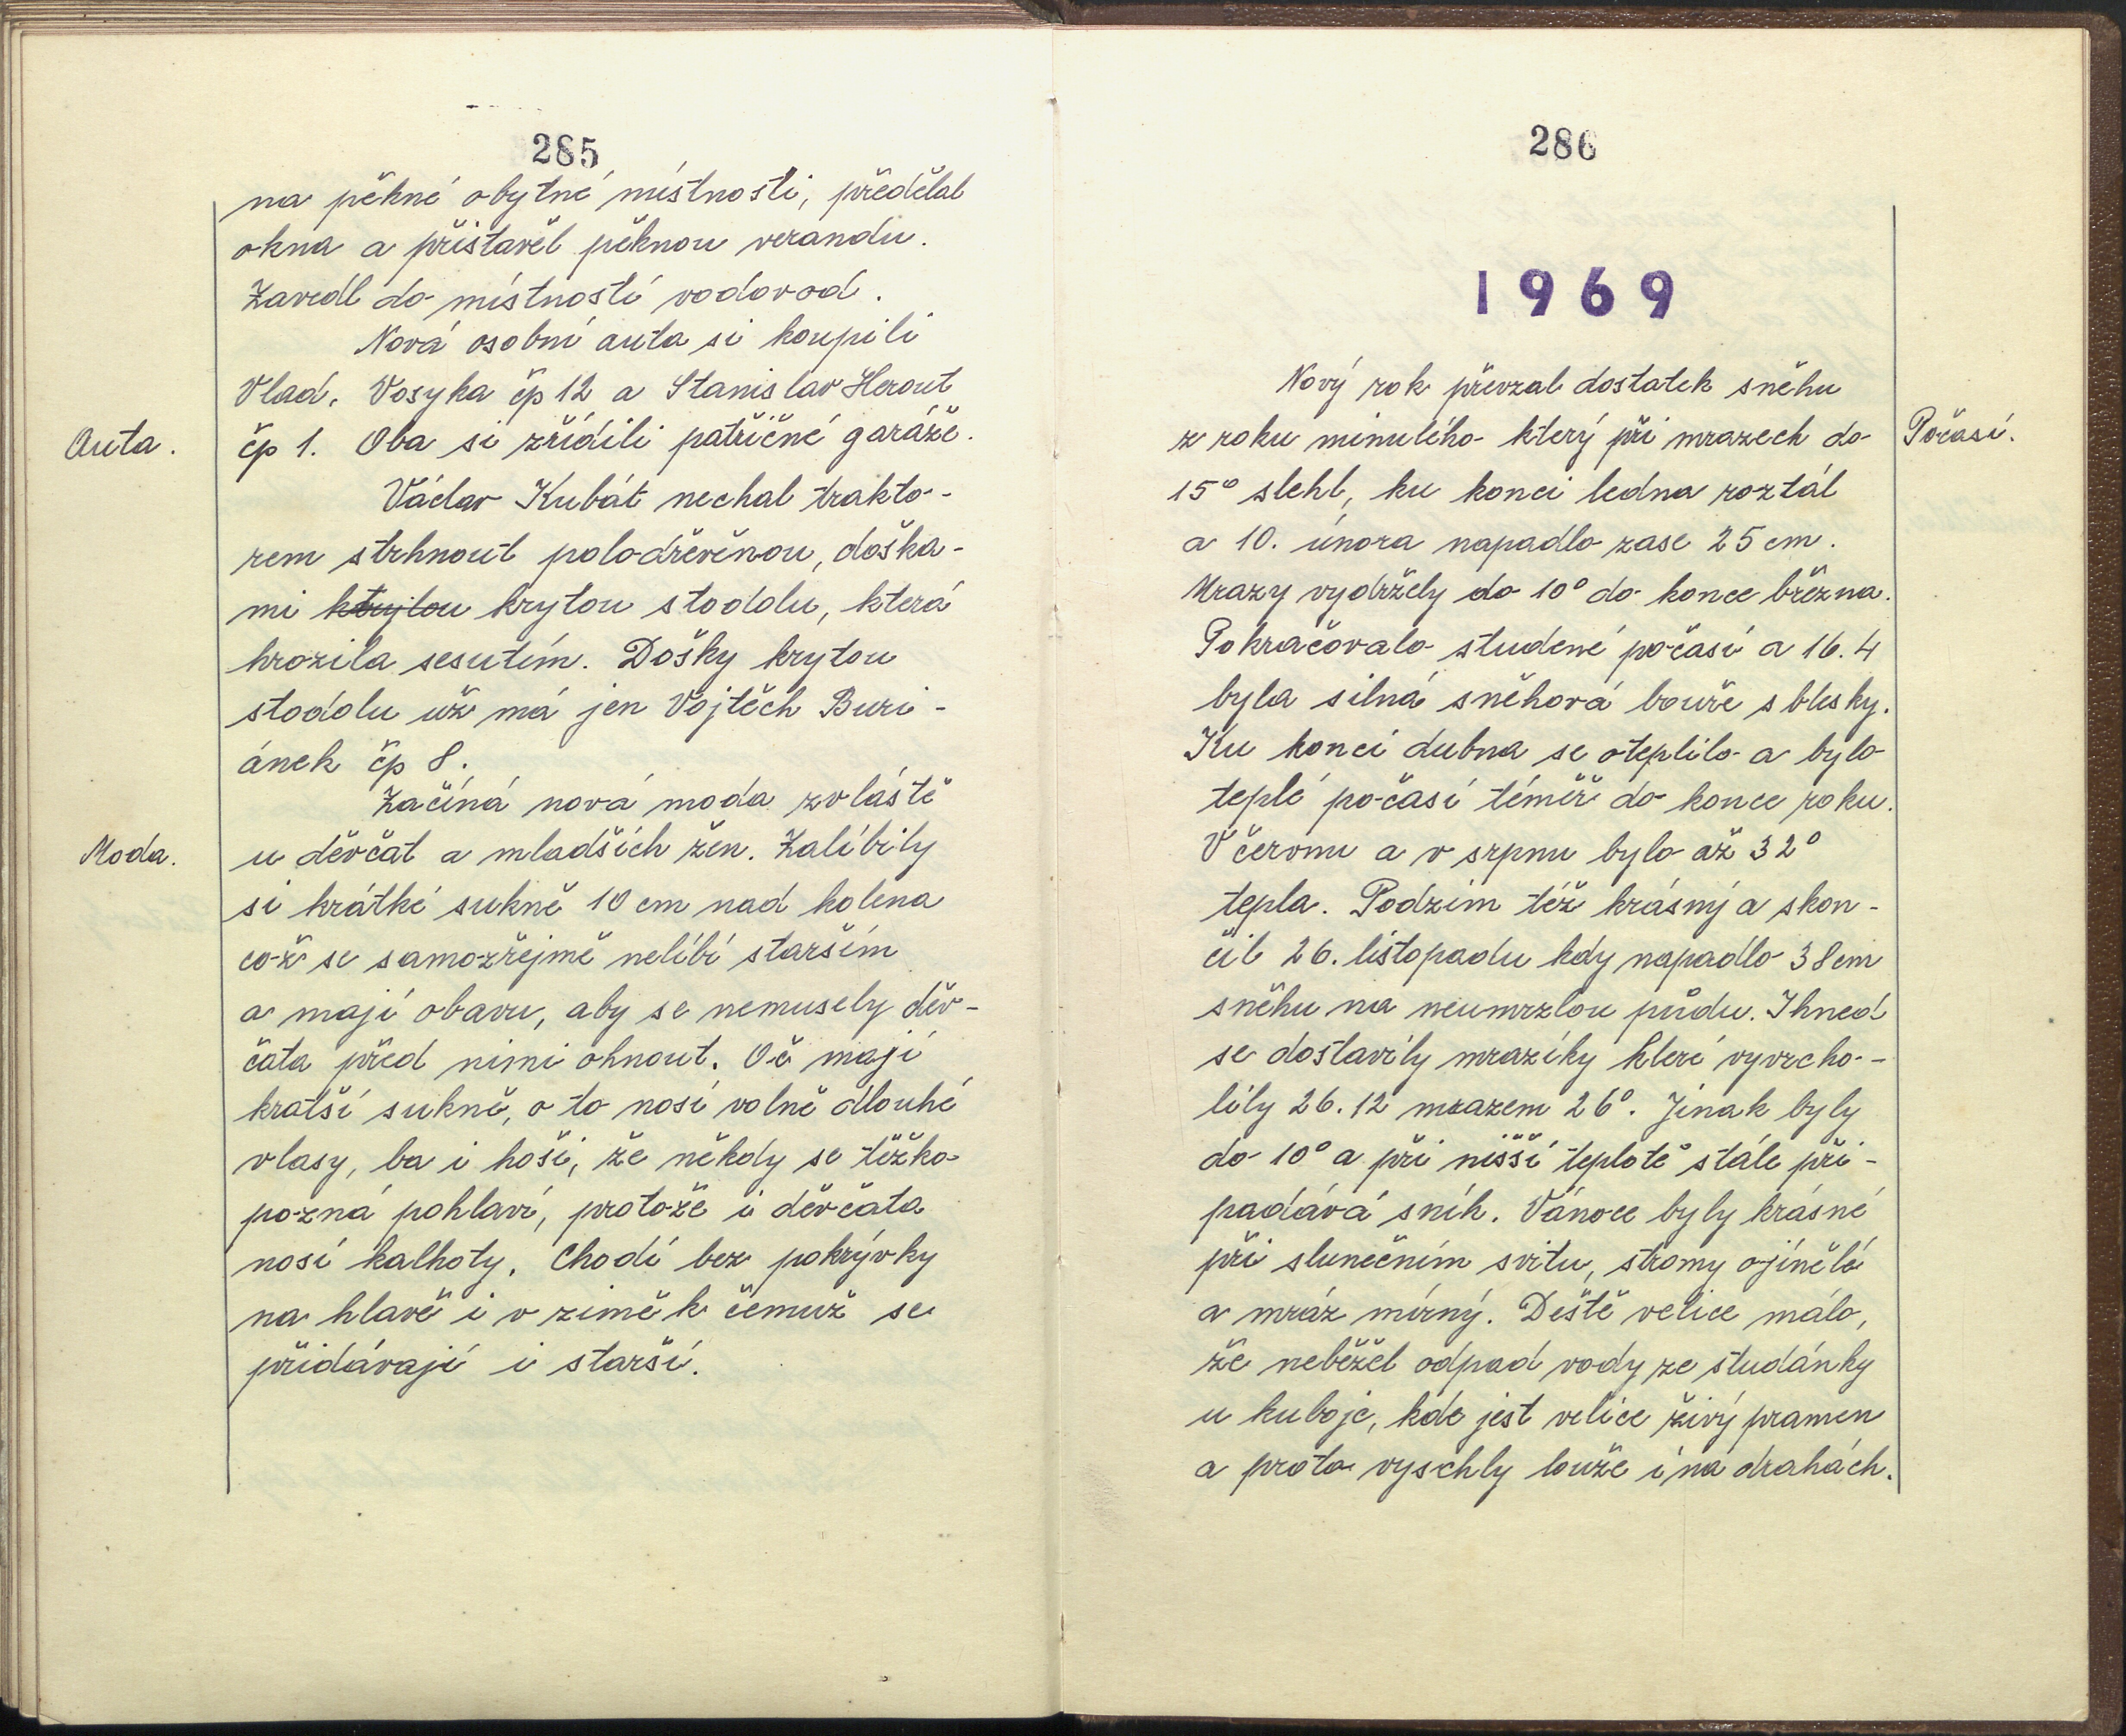 285
na pěkné obytné místnosti, předělal
okna a přistavěl pěknou verandu.
Zavedl do místností vodovod.
Nová osobní auta si koupili
Vlad. Vosyka čp 12 a Stanislav Herout
Auta.
čp 1. Oba si zřídili patřičné garáže.
Václav Kubát nechal trakto-
rem strhnout polodřevěnou, doška-
mi krytou stodolu, která
hrozila sesutím. Došky krytou
stodolu už má jen Vojtěch Buri-
ánek čp 8.
Začíná nová moda zvláště
Moda.
u děvčat a mladších žen. Zalíbily
si krátké sukně 10 cm nad kolena
což se samozřejmě nelíbí starším
a mají obavu, aby se nemusely děv-
čata před nimi ohnout. Oč mají
kratší sukně, o to nosí volně dlouhé
vlasy, ba i hoši, že někdy se těžko
pozná pohlaví, protože i děvčata
nosí kalhoty. Chodí bez pokrývky
na hlavě i v zimě k čemuž se
přidávají i starší.
286
1969
Nový rok převzal dostatek sněhu
z roku minulého který při mrazech do
Počasí.
15° slehl, ku konci ledna roztál
a 10. února napadlo zase 25 cm.
Mrazy vydržely do 10° do konce března.
Pokračovalo studené počasí a 16.4
byla silná sněhová bouře s blesky.
Ku konci dubna se oteplilo a bylo
teplé počasí téměř do konce roku.
V červnu a v srpnu bylo až 32°
tepla. Podzim též krásný a skon-
čil 26. listopadu kdy napadlo 38 cm
sněhu na neumrzlou půdu. Ihned
se dostavily mrazíky které vyvrcho-
lily 26.12 mrazem 26°. Jinak byly
do 10° a při nišší teplotě stále při-
padává sníh. Vánoce byly krásné
při slunečním svitu, stromy ojínělé
a mráz mírný. Deště velice málo,
že neběžel odpad vody ze studánky
u kuboje, kde jest velice živý pramen
a proto vyschly louže i na drahách.